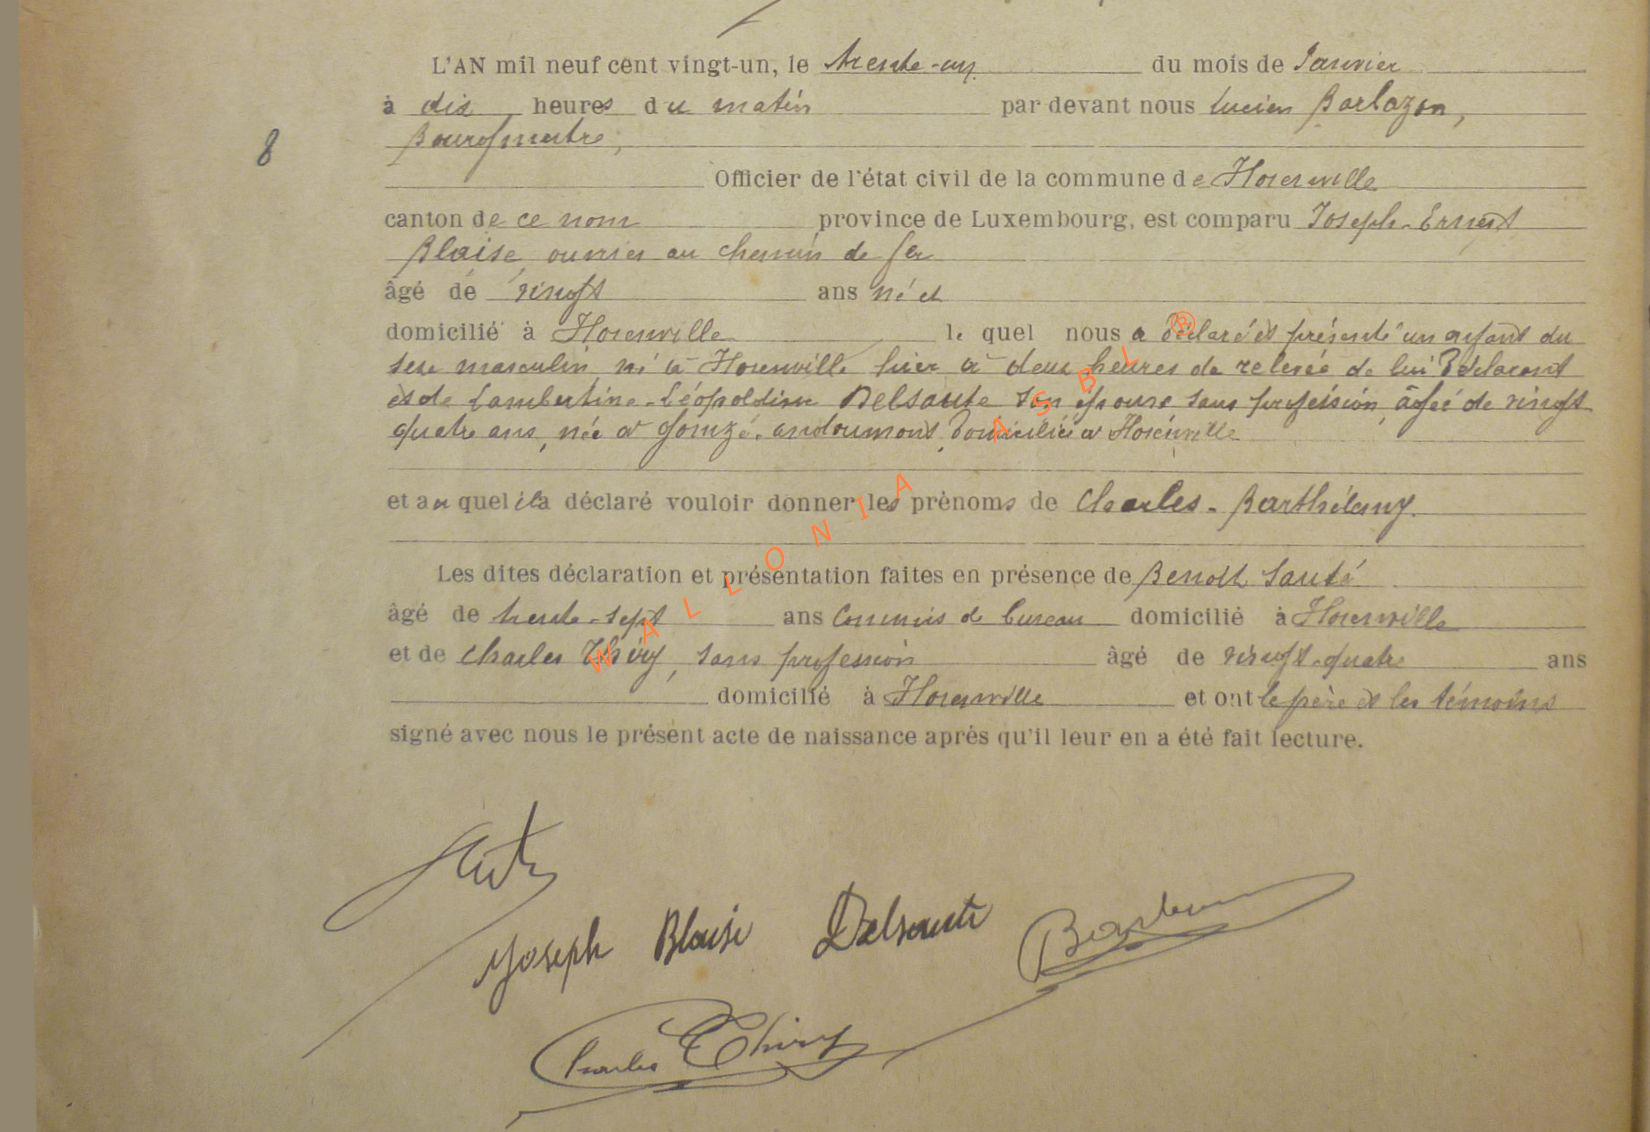 L'AN mil neuf cent vingt-un, le trente-un du mois de Janvier
à dix heures du matin par devant nous Lucien Barbazon,
8
Bourgmestre,
Officier de l'état civil de la commune de
canton de ce nom province de Luxembourg, est comparu Joseph-Ernest
Blaise, ouvrier au chemin de fer
âgé de vingt ans né et
domicilié à le quel nous a déclaré et présenté un enfant du
sexe masculin né à hier à deux heures de relevée de lui déclarant
et de Lambertine-Léopoldine Delsaute son épouse, sans profession, âgée de vingt
quatre ans, née à Gomzé-andoumont, domiciliée à
et au quel il a déclaré vouloir donner les prénoms de Charles-Barthélemy.
Les dites déclaration et présentation faites en présence de Benoit
âgé de trente-sept ans Commis de bureau domicilié à
et de Charles Thiry, sans profession âgé de vingt-quatre ans
domicilié à et ont le père et les témoins
signé avec nous le présent acte de naissance après qu'il leur en a été fait lecture.
Joseph Blaise Delsaute
Charles Thiry
WALLONIA ASBL ®